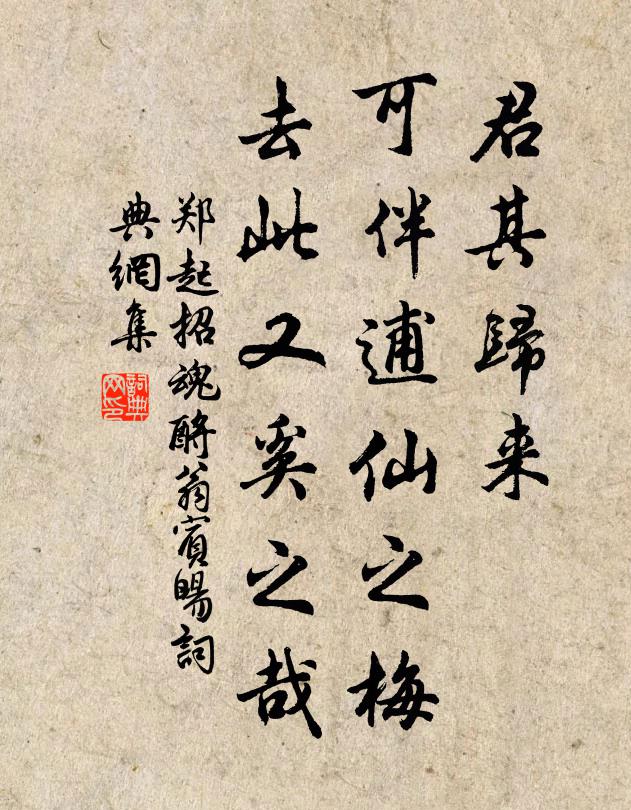 君其歸来
可伴逋仙之梅
去此又奚之哉
郑起招魂酹翁賓暘詞
典網集
詞典
网印